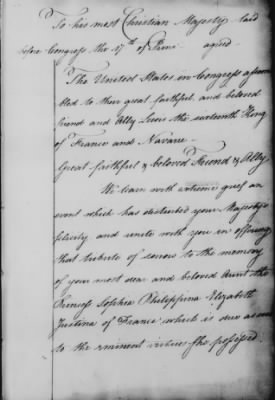 To his most Christian Majesty laid
before Congress the 17th of June agreed
The United States in Congress assem
bled to their great faithful and beloved
friend and Ally Lewis the sixteenth King
of France and Navarre
Great faithful & beloved Friend & Ally
We learn with extreme grief an
event which has disturbed your Majesty's
felicity and unite with you in offering
that tribute of sorrow to the memory
of your most dear and beloved Aunt the
Princess Sophia Philippina Elizabeth
Justina of France which is due as well
to the eminent virtues she possessed